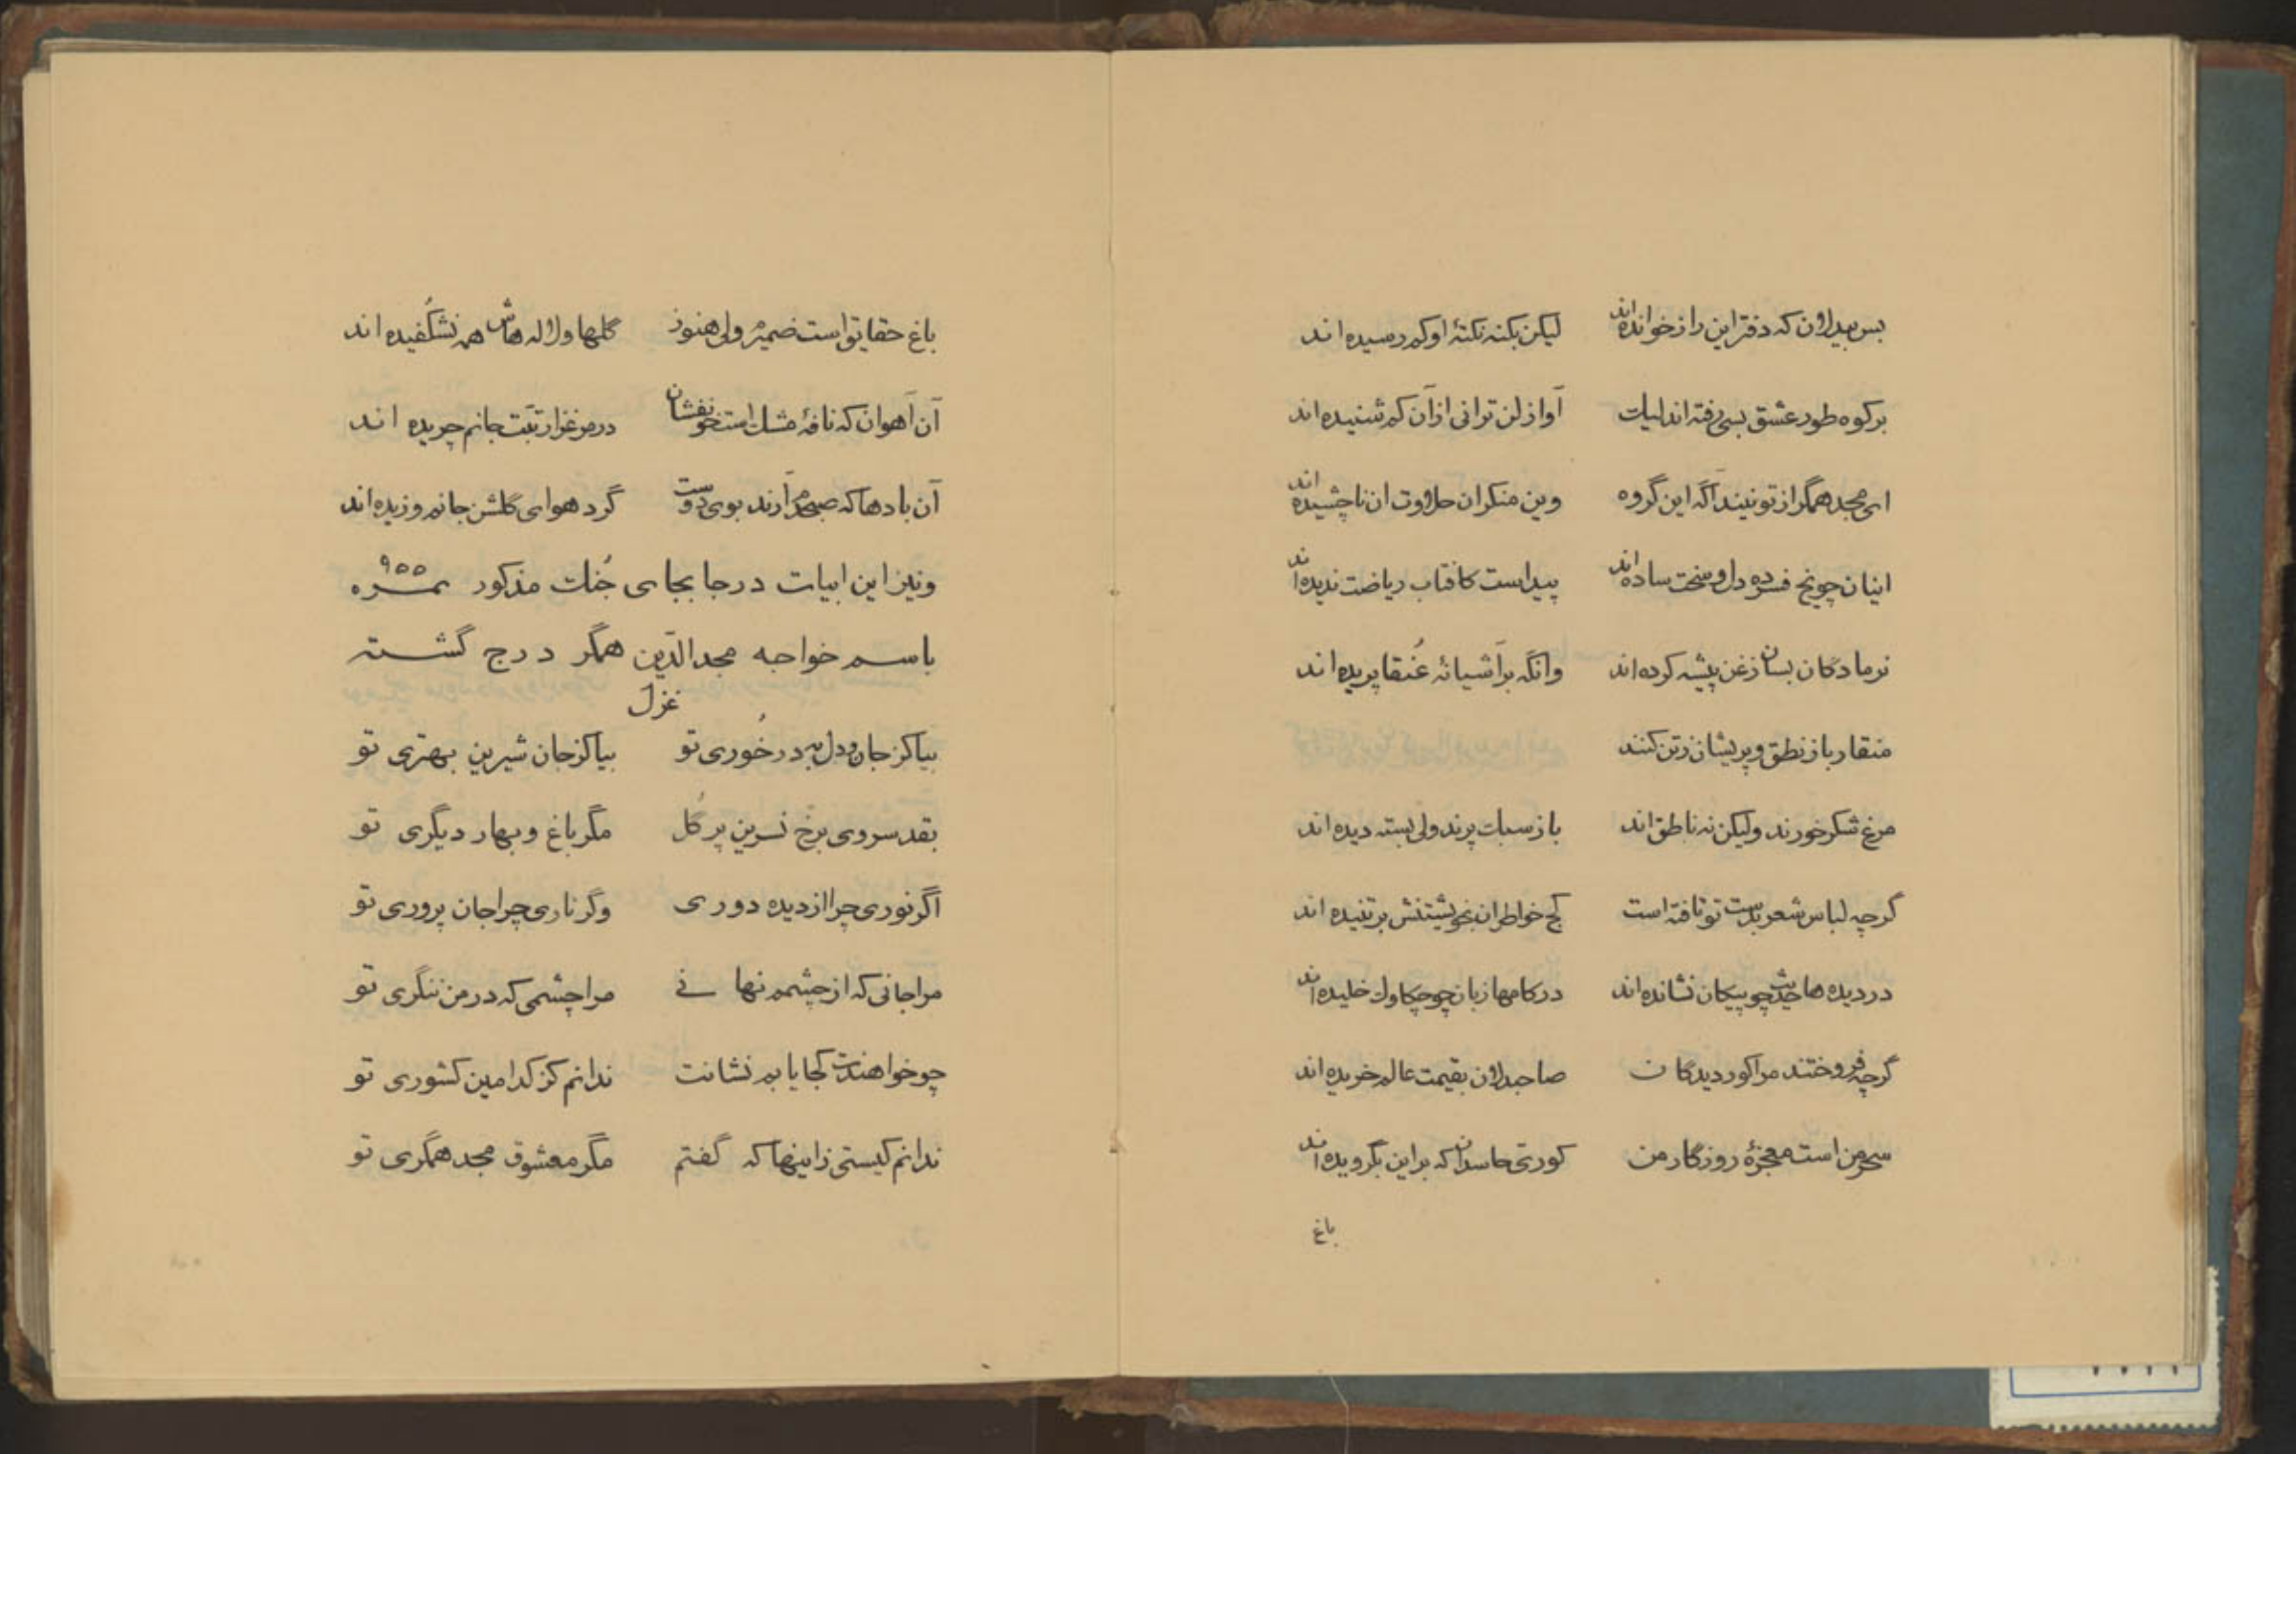 بس بیدلان که دفتر این راز خوانده‌اند لیکن بکنه نکتهٔ او کم رسیده اند
بر کوه طور عشق بسی رفته‌اند لیک آواز لن ترانی از آن کم شنیده اند
ای مجد همگر از تو نیند آگه این گروه وین منکران حلاوت ان ناچشیده اند
اینان چو یخ فسرده دل و سخت ساده اند پیداست کافتاب ریاضت ندیده اند
نر مادگان بسان زغن پیشه کرده اند وانگه بر آشیانهٔ عُنقا پریده اند
منقار باز نطق و پریشان زتن کنند
مرغ شکر خورند ولیکن نه ناطق اند باز سبک پرند ولی بسته دیده اند
گرچه لباس شعر بدست تو تافته است کج خواطران بخویشتنش بر تنیده اند
در دیده ها حدیث چو پیکان نشانده اند در کامها زبان چو چکاوک خلیده اند
گرچه فروختند مرا کور دیدگان صاحبدلان بقیمت عالم خریده اند
سحر من است معجزهٔ روزگار من کوری حاسدان که بر این بگرویده اند
باغ
باغ حقایق است ضمیرم ولی هنوز گلها و لاله هاش همه نشکُفیده اند
آن آهوان که نافهٔ مشک است خو نفشان در مرغزار تبّت جانم چریده اند
آن بادها که صبحدم آرند بوی دوست گرد هوای گلشن جانم وزیده اند
ونیز این ابیات در جا بجای جُنگ مذکور نمره ۹۵۵
باسم خواجه مجدالدّین همگر درج گشته
غزل
بیا کز جان و دل به در خُوری تو بیا کز جان شیرین بهتری تو
بقد سروی برخ نسرین بر گُل مگر باغ و بهار دیگری تو
اگر نوری چرا از دیده دوری وگر ناری چرا جان پروری تو
مرا جانی که از چشمم نهانی مرا چشمی که در من ننگری تو
چو خواهندت کجا یابم نشانت ندانم کز کدامین کشوری تو
ندانم کیستی زاینها که گفتم مگر معشوق مجد همگری تو